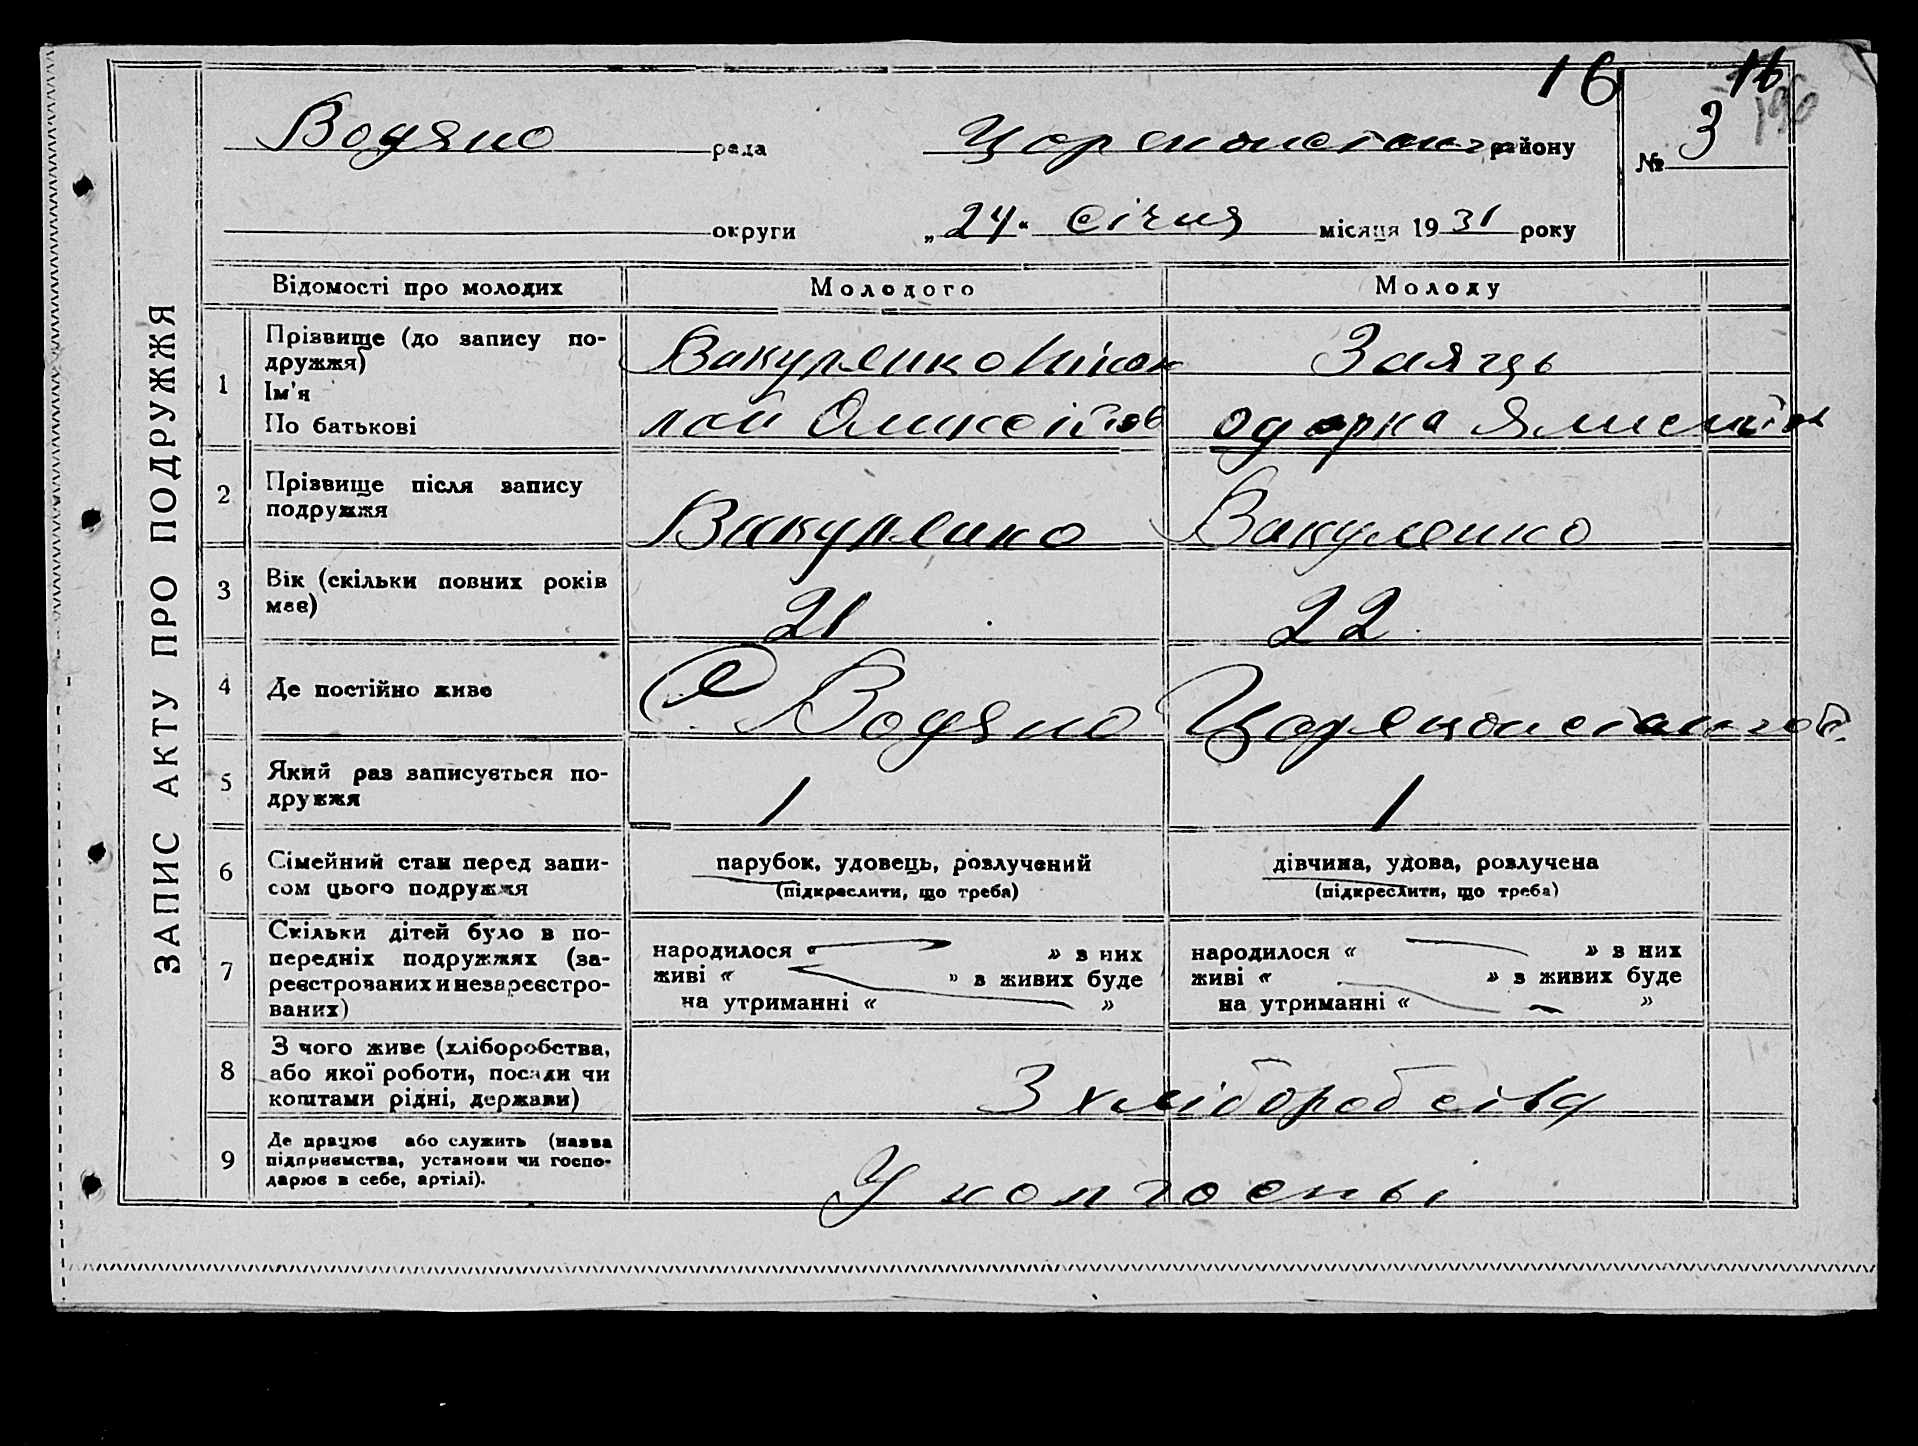 16 16
ЗАПИС АКТУ ПРО ПОДРУЖЖЯ
Водяно рада району № 3
округи „24“ січня місяця 1931 року
Відомості про молодих Молодого Молоду
1 Прізвище (до запису подружжя) Вакуленко Нико Заяць
Ім'я
По батькові лай Олексійов Одорка
2 Прізвище після запису подружжя Вакуленко Вакуленко
3 Вік (скільки повних років має) 21 22
4 Де постійно живе С Водяно
5 Який раз записується подружжя 1 1
6 Сімейний стан перед записом цього подружжя парубок, удовець, розлучений дівчина, удова, розлучена
(підкреслити, що треба) (підкреслити, що треба)
7 Скільки дітей було в попередніх подружжях (зареєстрованих и незареєстрованих)
народилося « » в них народилося « » в них
живі « » в живих буде живі « » в живих буде
на утриманні « » на утриманні « »
8 З чого живе (хліборобства, або якої роботи, посади чи коштами рідні, держави) З хліборобства
9 Де працює або служить (назва підприємства, установи чи господарює в себе, артілі). У колгоспы